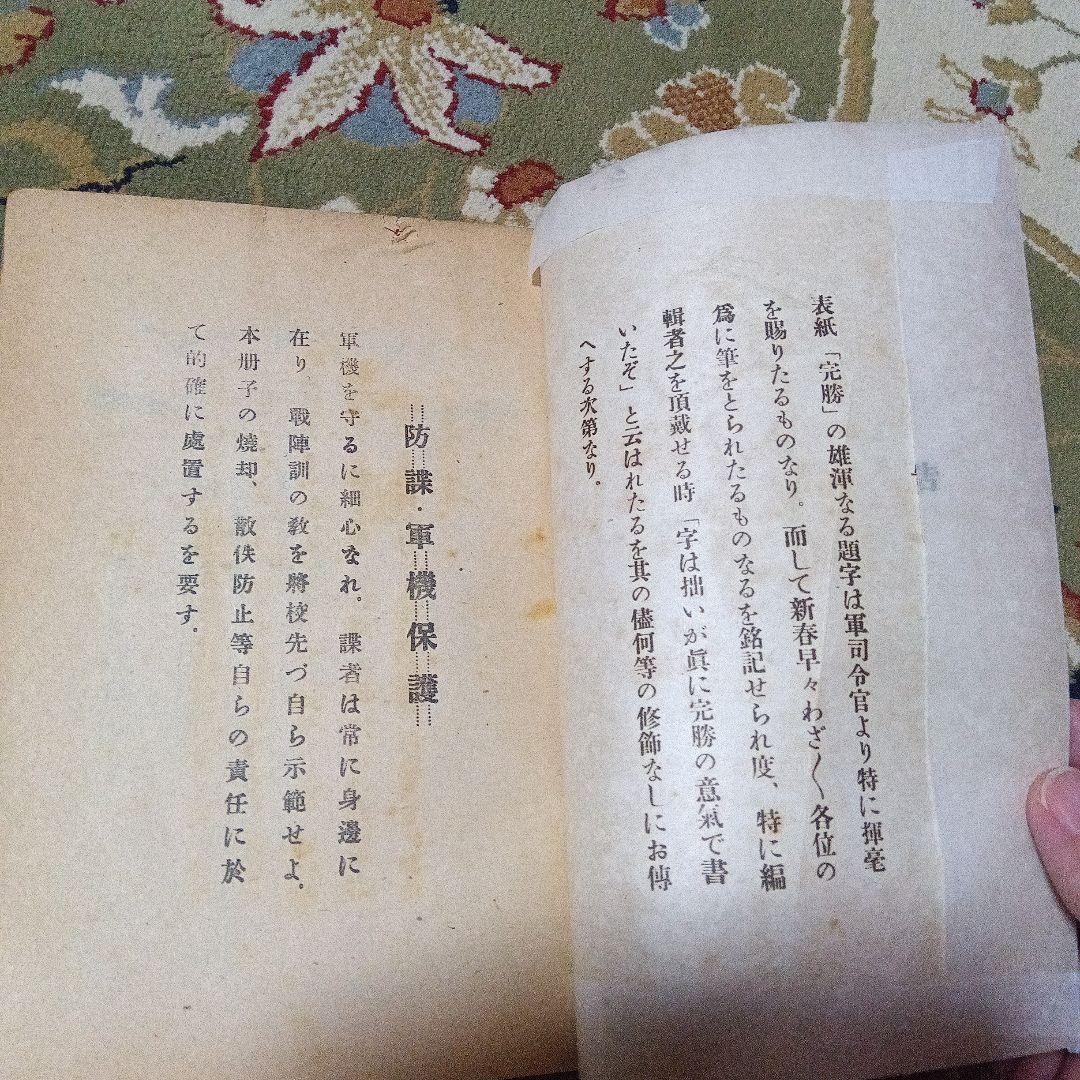 表紙「完勝」の雄渾なる題字は軍司令官より特に揮毫
を賜りたるものなり。而して新春早々わざ〱各位の
爲に筆をとられたるものなるを銘記せられ度、特に編
輯者之を頂戴せる時「字は拙いが眞に完勝の意氣で書
いたぞ」と云はれたるを其の儘何等の修飾なしにお傳
へする次第なり。
防諜・軍機保護
軍機を守るに細心なれ。諜者は常に身邊に
在り、戰陣訓の敎を將校先づ自ら示範せよ。
本册子の燒却、散佚防止等自らの責任に於
て的確に處置するを要す。